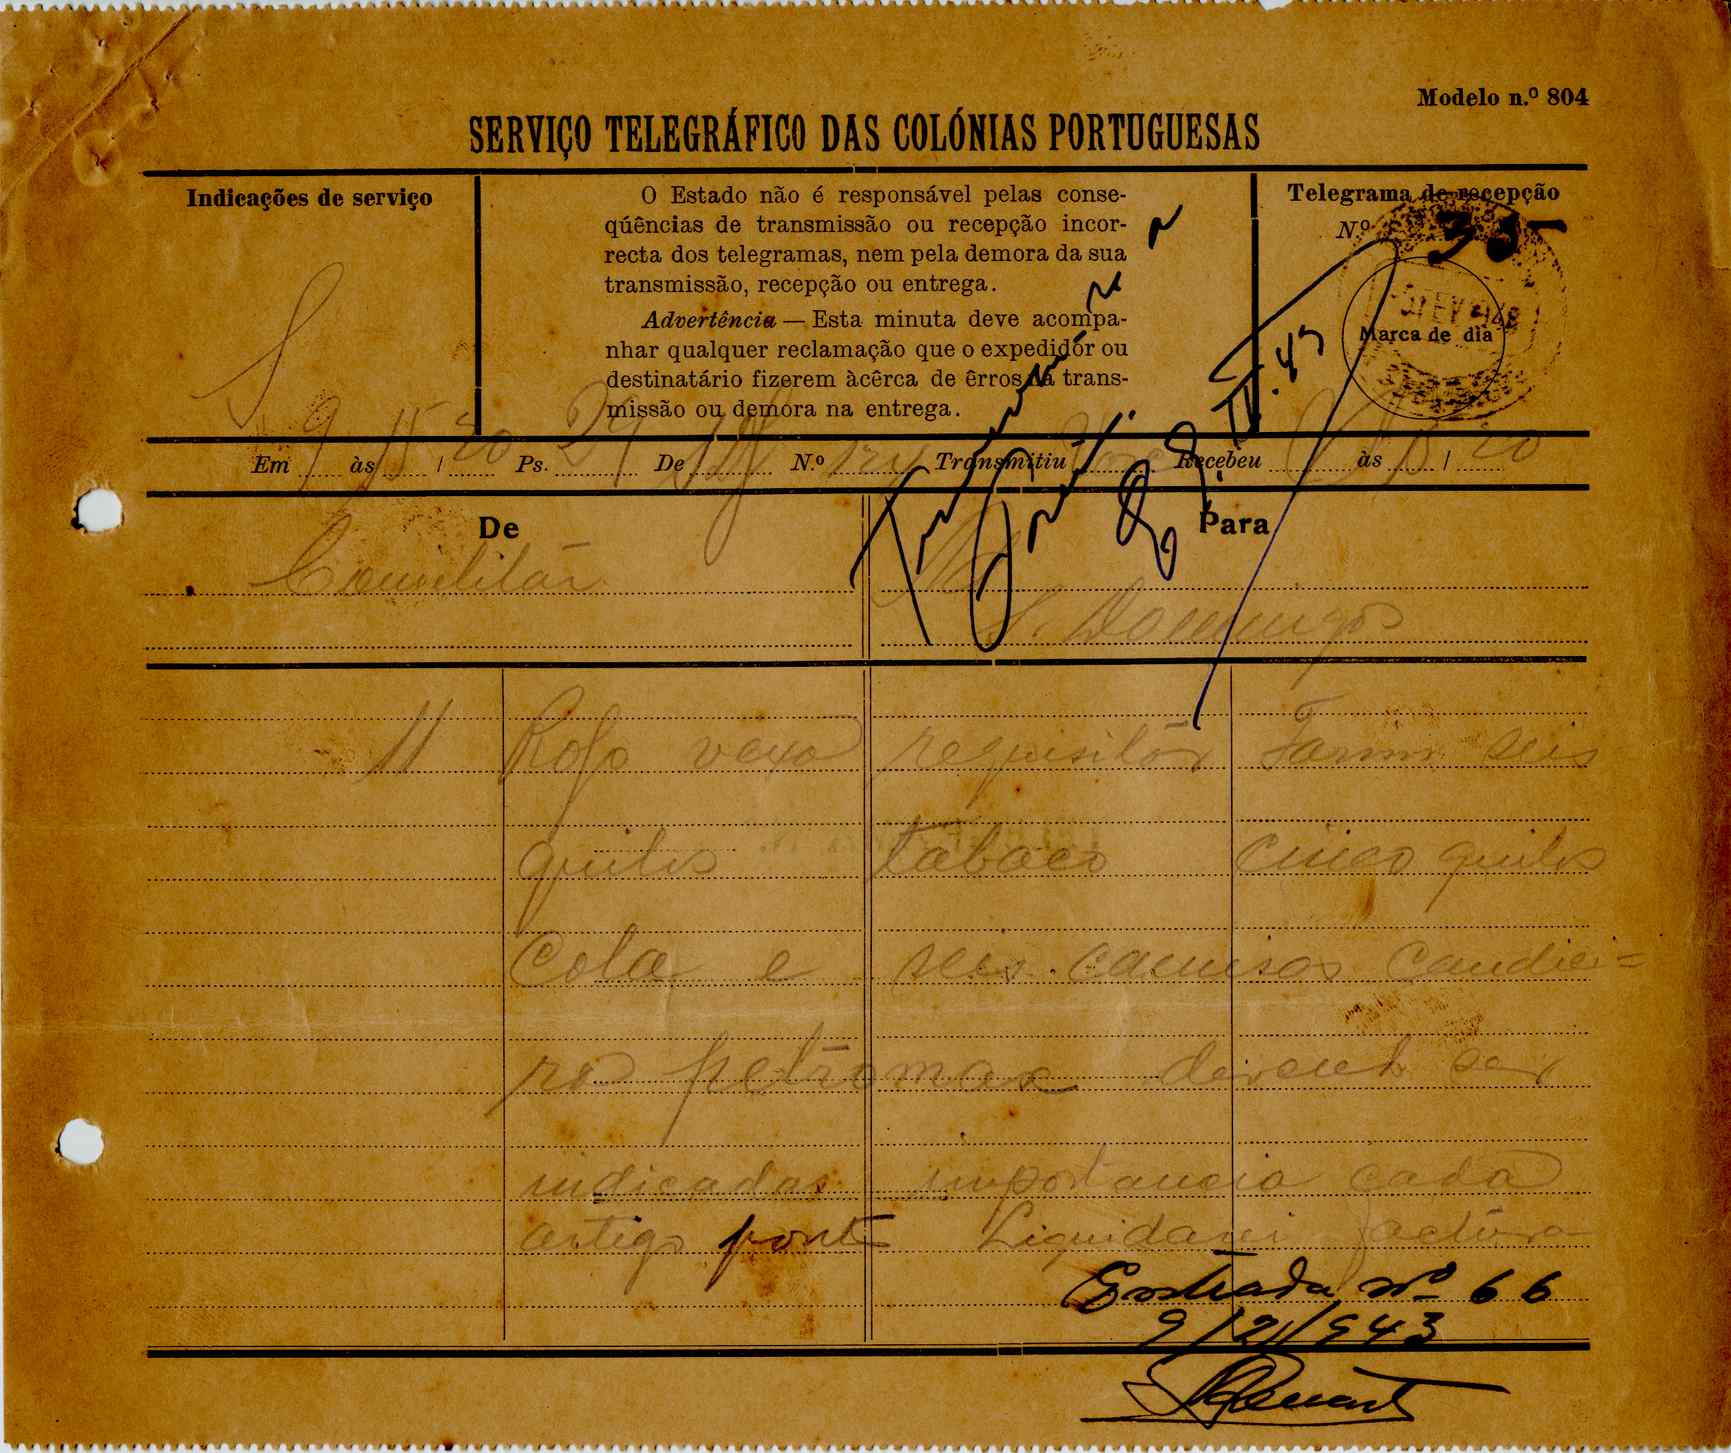 Modelo n.º 804
SERVIÇO TELEGRÁFICO DAS COLÓNIAS PORTUGUESAS
Indicações de serviço
S
O Estado não é responsável pelas conse-
qúências de transmissão ou recepção incor-
recta dos telegramas, nem pela demora da sua
transmissão, recepção ou entrega.
Advertência — Esta minuta deve acompa-
nhar qualquer reclamação que o expedidor ou
destinatário fizerem àcêrca de êrros na trans-
missão ou demora na entrega.
Telegrama de recepção
N.º 35
Marca de dia
Em 9 às 15 / 20 Ps. 29 De N.º Transmitiu Recebeu às / 20
De
Comilitár
Para
S. Domingos
11 Rogo vexa requisitár Farm seis
quilos tabaco cinco quilos
cola e seis camisas candiei=
ro petromax devendo ser
indicadas importancia cada
artigo ponto Liquidarei factura
Entrada nº 66
9/2/943